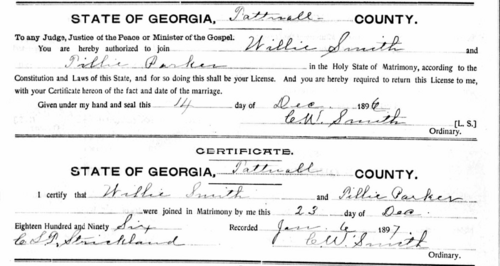 STATE OF GEORGIA, Tattnall COUNTY.
To any Judge, Justice of the Peace or Minister of the Gospel.
You are hereby authorized to join Willie Smith and
Tillie Parker in the Holy State of Matrimony, according to the
Constitution and Laws of this State, and for so doing this shall be your License. And you are hereby required to return this License to me,
with your Certificate hereon of the fact and date of the marriage.
Given under my hand and seal this 14 day of Dec 1896
C W. Smith [L. S.]
Ordinary.
CERTIFICATE.
STATE OF GEORGIA, Tattnall COUNTY.
I certify that Willie Smith and Tillie Parker
were joined in Matrimony by me this 23 day of Dec.
Eighteen Hundred and Ninety Six Recorded Jan 6 1897
Strickland C W Smith
Ordinary.